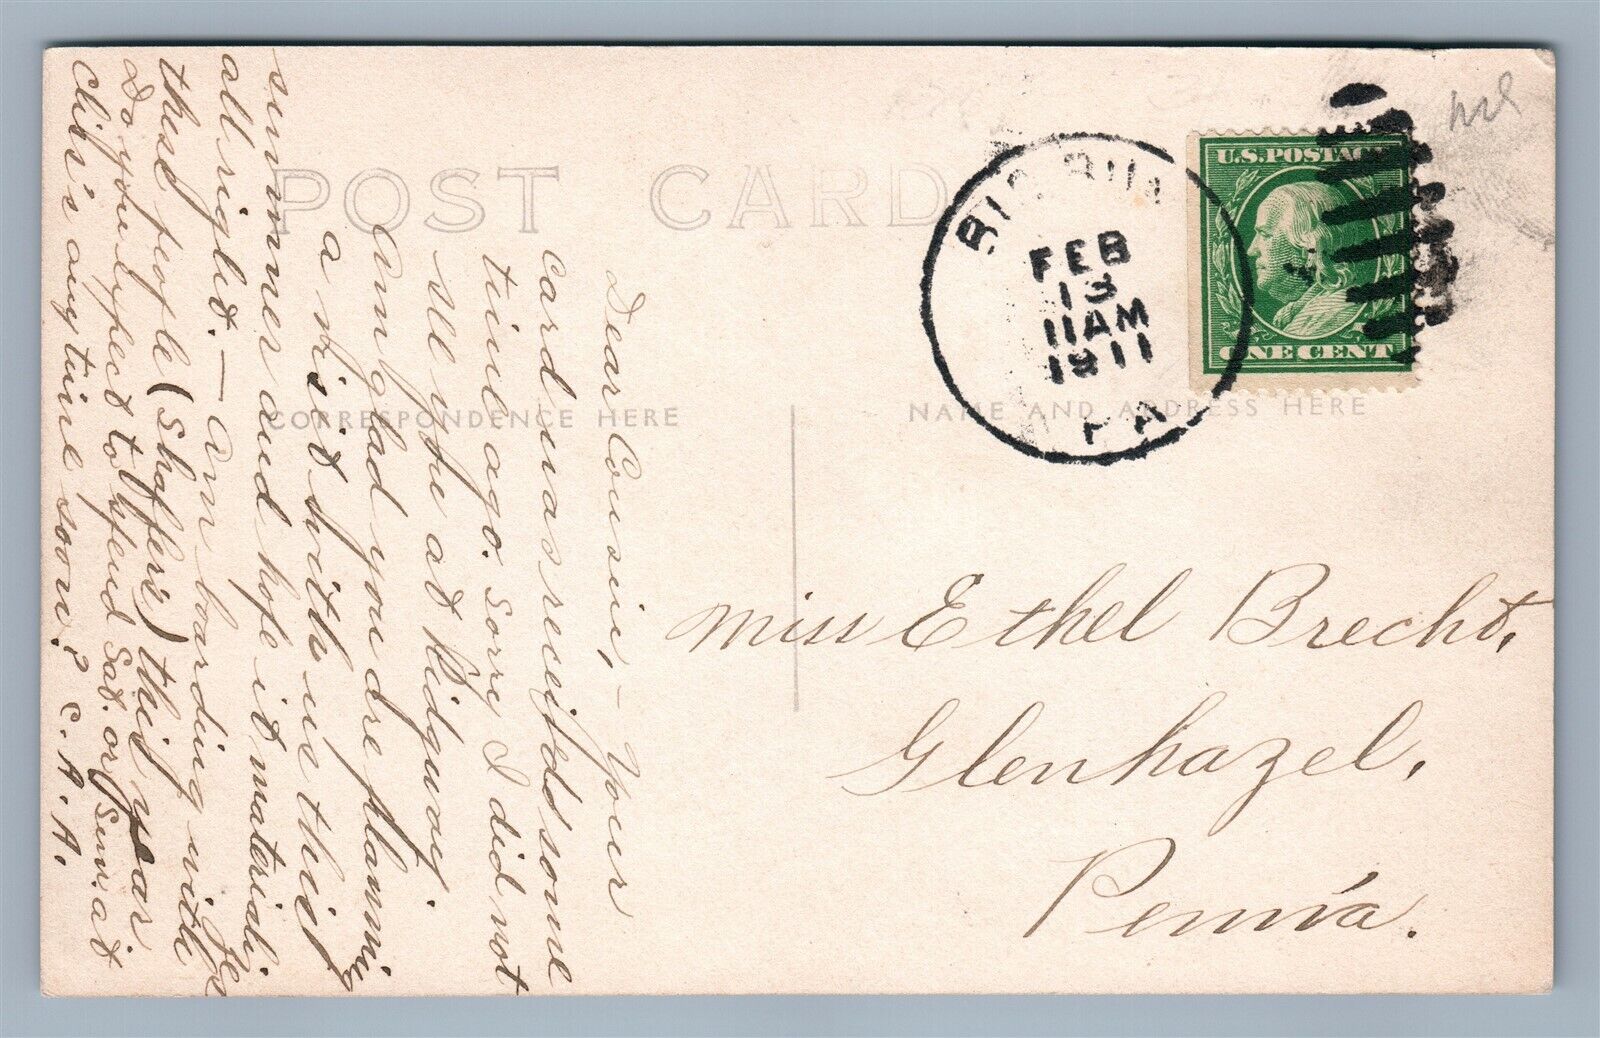 POST CARD
CORRESPONDENCE HERE
NAME AND ADDRESS HERE
U.S. POSTAGE
ONE CENT
FEB
13
11 AM
1911
PA
Dear Cousin, - Your
card was received some
time ago. Sorry I did not
see you at Ridgway.
Am glad you are planning
a visit with us this
summer and hope it materializes
all right. - Am boarding with
these people (Shaffer's) this year
Do you expect to spend Sat. or Sun. at
Clif's any time soon? C. A. A.
Miss Ethel Brecht,
Glenhazel,
Penn'a.